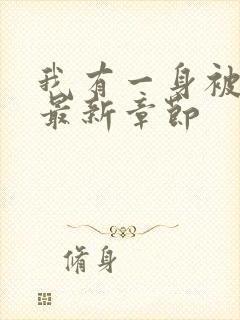 我有一身被
最新章节
脩身